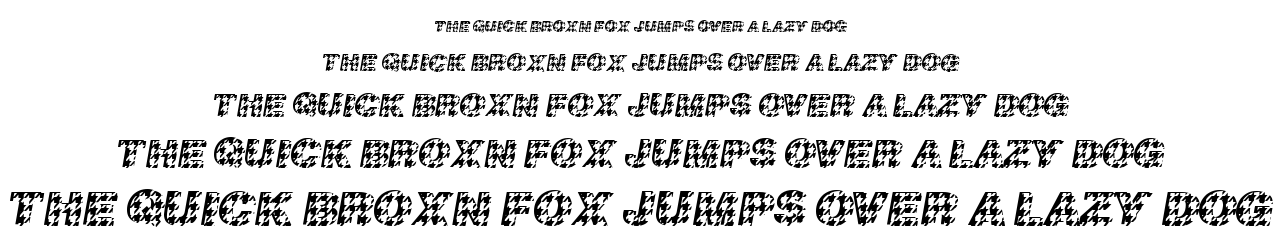 THE QUICK BROXN FOX JUMPS OVER A LAZY DOG
THE QUICK BROXN FOX JUMPS OVER A LAZY DOG
THE QUICK BROXN FOX JUMPS OVER A LAZY DOG
THE QUICK BROXN FOX JUMPS OVER A LAZY DOG
THE QUICK BROXN FOX JUMPS OVER A LAZY DOG